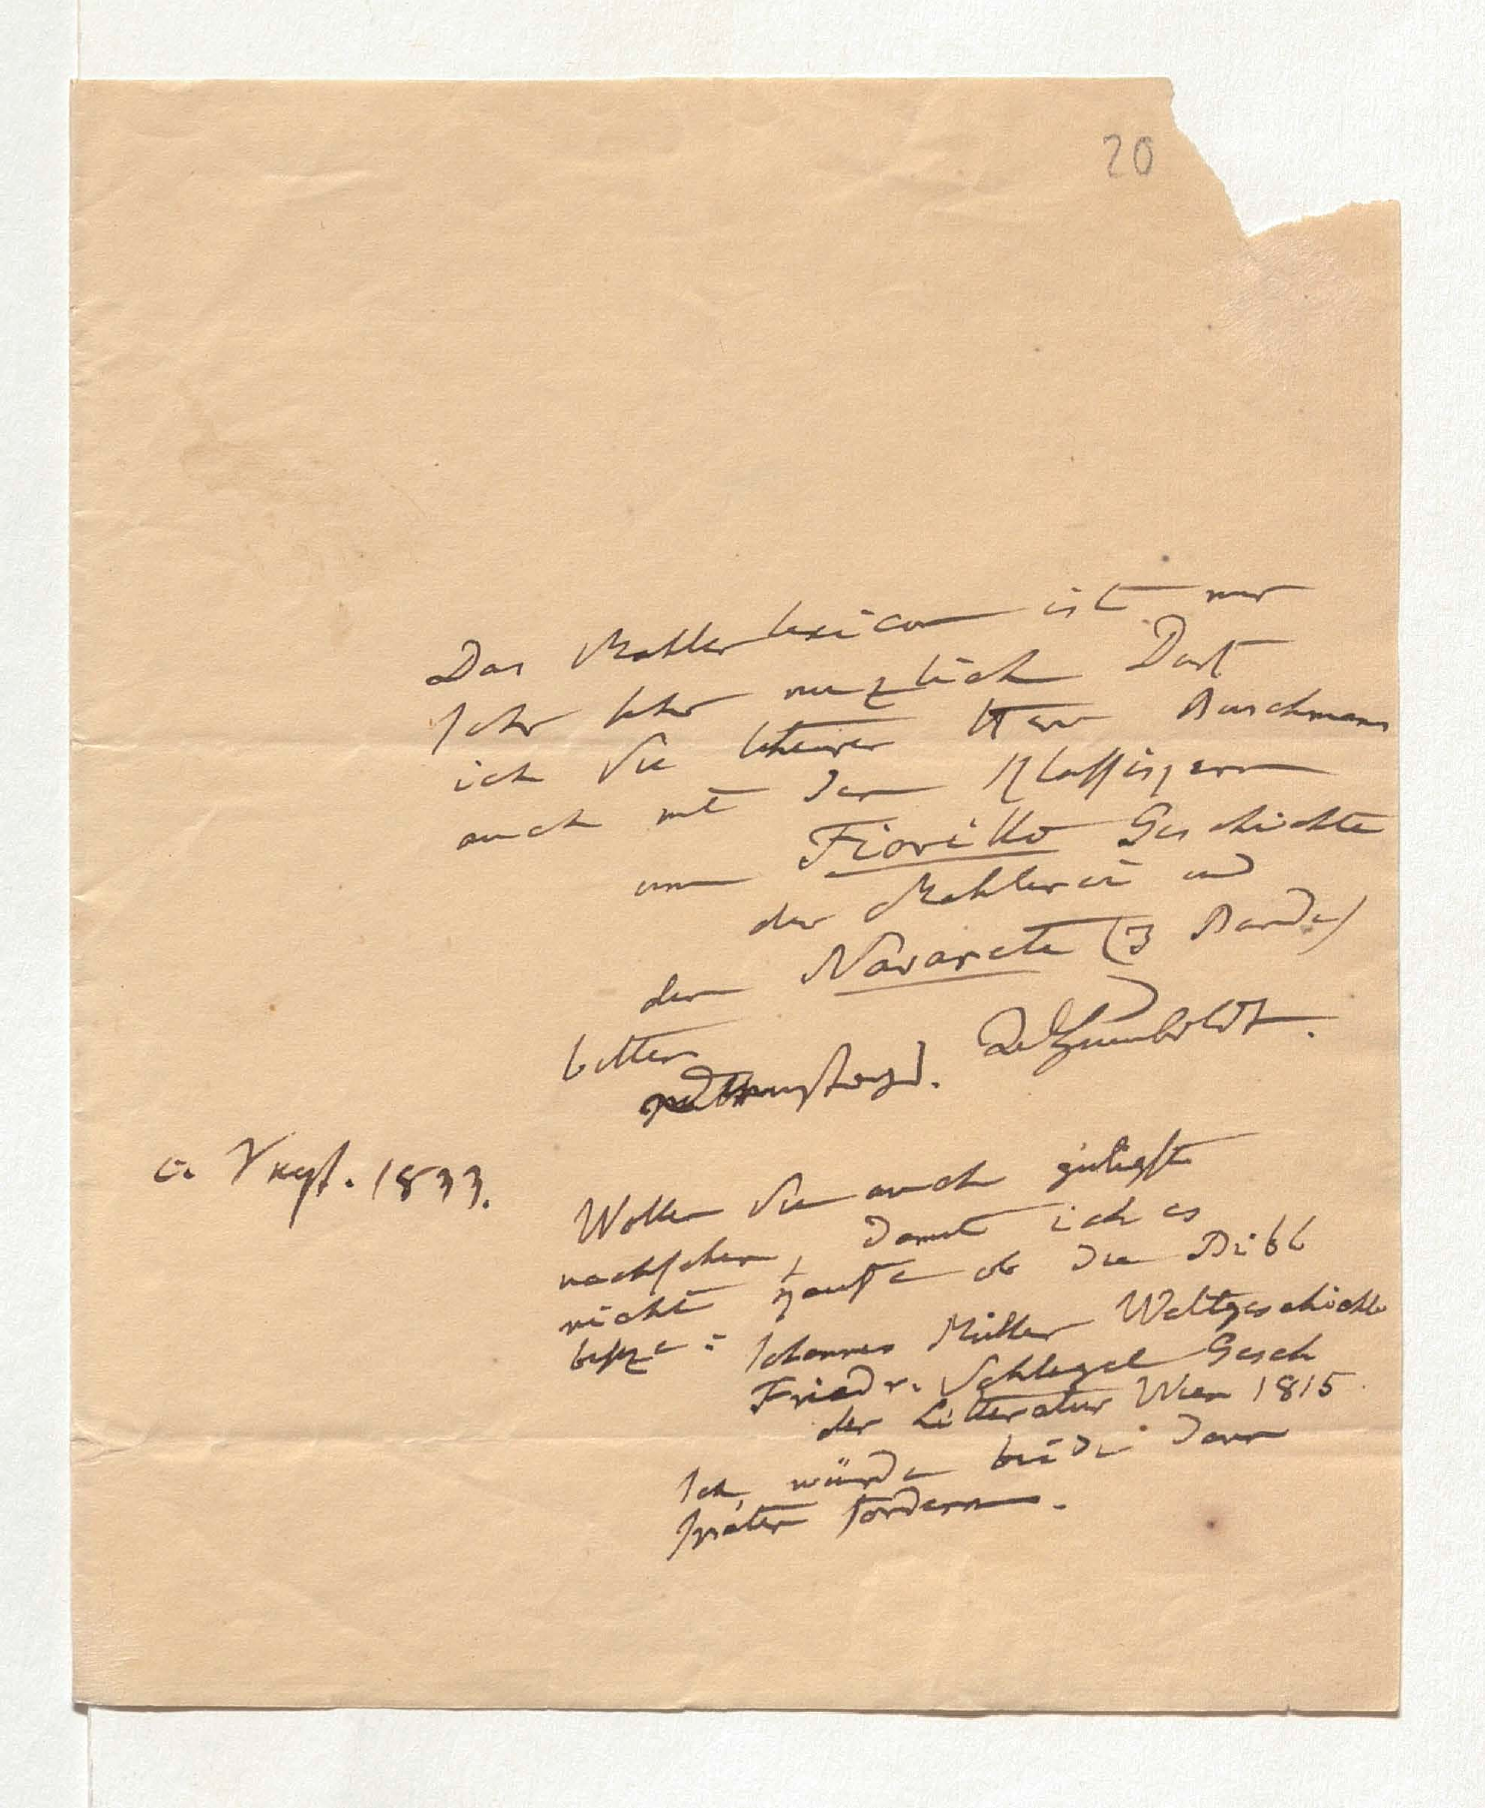 20
Das Mahlerlexicon ist mir
sehr sehr nuzlich Darf
ich Sie theurer Herr Buschmann
auch mit den Klassikern
um Fiorillo Geschichte
der Mahlerei und
den Navarete (3 Bande)
bitten
AvHumboldt.
1833.
Wollen Sie auch gütigst
nachsehen, damit ich es
nicht kaufe ob die Bibl
besize: Johannes Müller Weltgeschichte
Friedr. Schlegel Gesch
der Litteratur Wien 1815
Ich würde beide dann
später fordern.